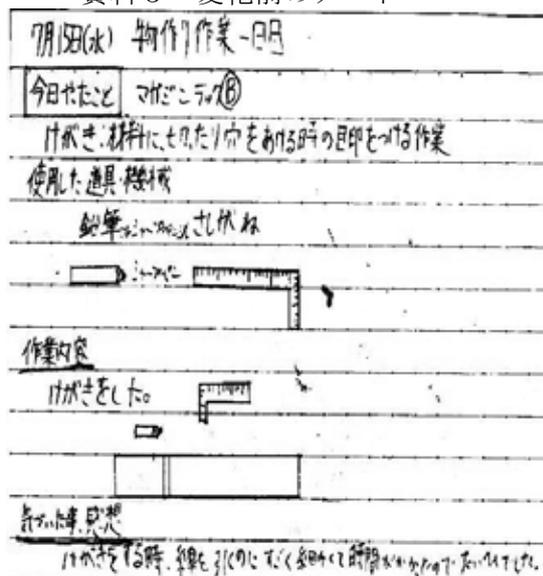 7月15日(水) 物作り作業一日目
今日やったこと マガジンラックⒷ
けがき:材料に、切ったり穴をあける時の目印をつける作業
使用した道具・機械
鉛筆 シャープペンシル さしがね
シャーペン
作業内容
けがきをした。
気づいた事、感想
けがきをする時、線を引くのにすごく細かくて時間がかかったのでたいへんでした。